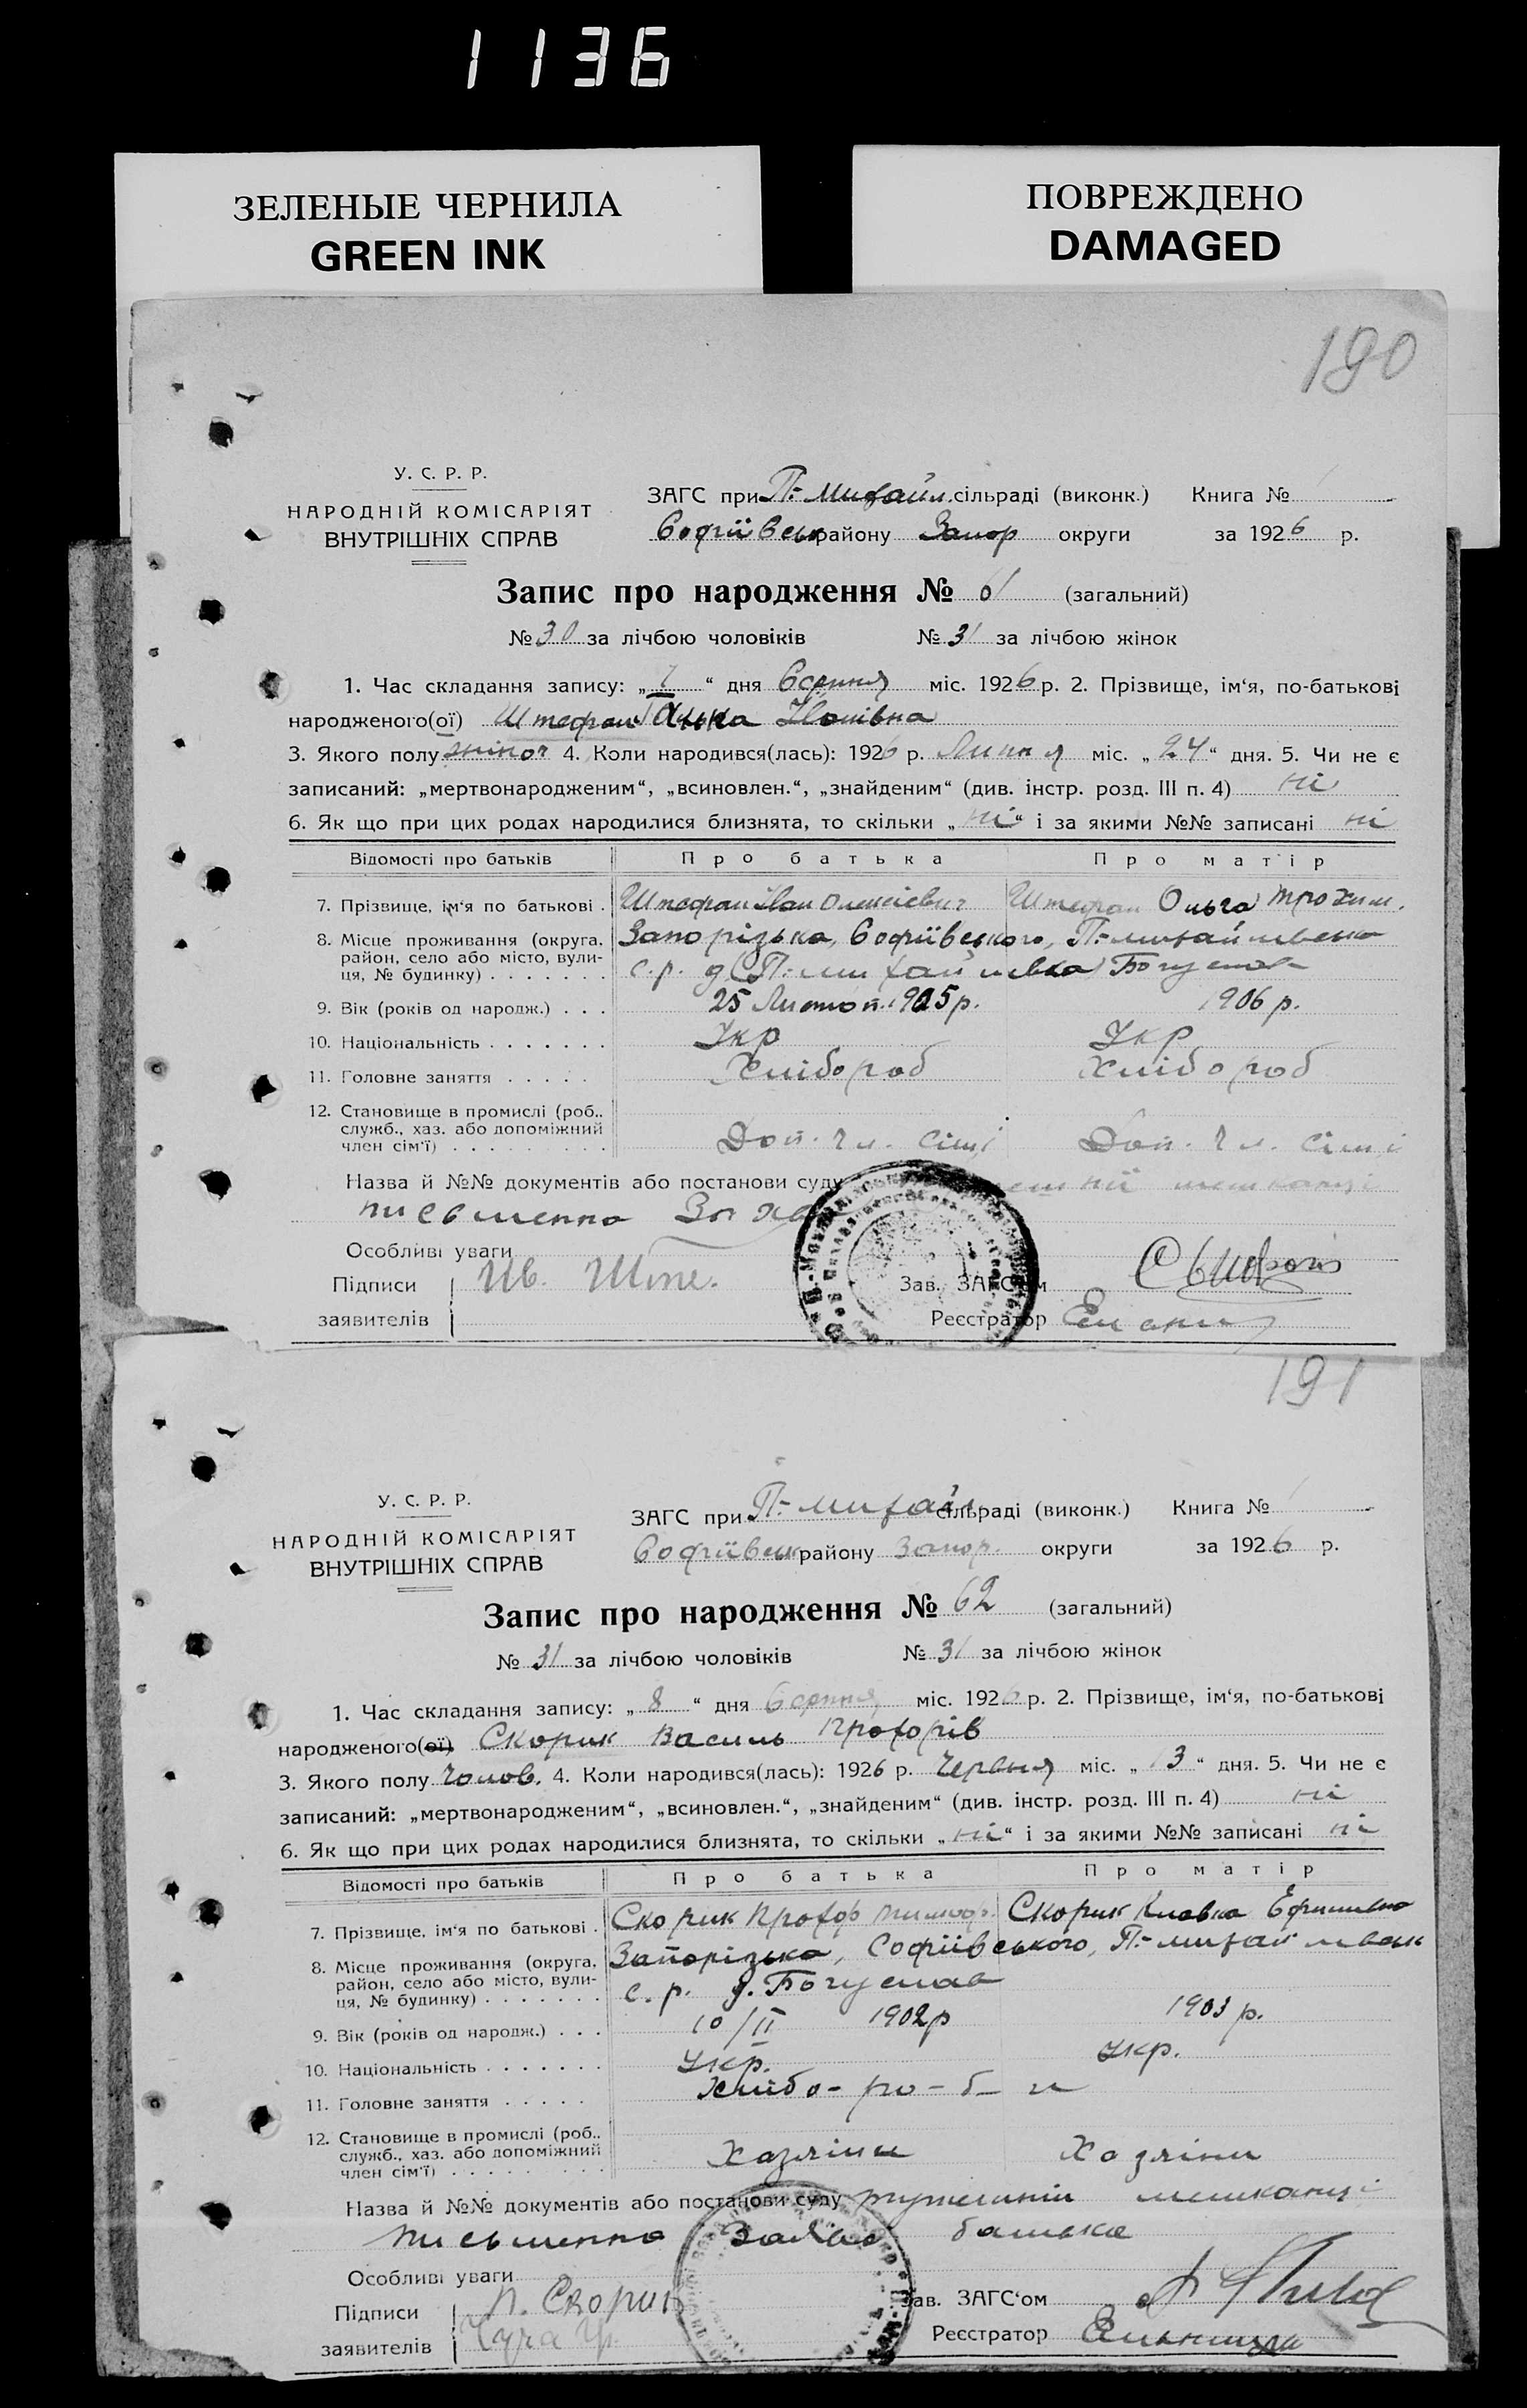 1136
ЗЕЛЕНЫЕ ЧЕРНИЛА
GREEN INK
ПОВРЕЖДЕНО
DAMAGED
190
У. С. Р. Р.
НАРОДНІЙ КОМІСАРІЯТ
ВНУТРІШНІХ СПРАВ
ЗАГС при П.-Михайл. сільраді (виконк.) Книга №
Софіївськ району Запор округи за 1926 р.
Запис про народження № 61 (загальний)
№ 30 за лічбою чоловіків № 31 за лічбою жінок
1. Час складання запису: „7“ дня Серпня міс. 1926 р. 2. Прізвище, ім‘я, по-батькові
народженого(ої) Штефан Іванівна
3. Якого полу жіноч 4. Коли народився(лась): 1926 р. Липня міс. „24“ дня. 5. Чи не є
записаний: „мертвонародженим“, „всиновлен.“, „знайденим“ (див. інстр. розд. III п. 4) ні
6. Як що при цих родах народилися близнята, то скільки „ні“ і за якими №№ записані ні
Відомості про батьків Про батька Про матір
7. Прізвище, ім‘я по батькові . Штефан Іван Олексієвич Штефан Ольга Трохим.
8. Місце проживання (округа, район, село або місто, вули-ця, № будинку) . . . . . . . Запорізька, Софіївського, П.-михайлівська
с.р. д. (П.-михайлівка) Богуслав
9. Вік (років од народж.) . . . 25 Листоп. 1905 р. 1906 р.
10. Національність . . . . . . . Укр Укр
11. Головне заняття . . . . . Хлібороб Хлібороб
12. Становище в промислі (роб., служб., хаз. або допоміжний член сім‘ї) . . . . . . . . . Доп. чл. сімї Доп. чл. сімї
Назва й №№ документів або постанови суду мешканці
письменна
Особливі уваги
Підписи Ив.Ште.
заявителів
Зав. ЗАГС‘ом
Реєстратор
191
У. С. Р. Р.
НАРОДНІЙ КОМІСАРІЯТ
ВНУТРІШНІХ СПРАВ
ЗАГС при П.-михайл. сільраді (виконк.) Книга №
Софіївськ району Запор. округи за 1926 р.
Запис про народження № 62 (загальний)
№ 31 за лічбою чоловіків № 31 за лічбою жінок
1. Час складання запису: „8“ дня Серпня міс. 1926 р. 2. Прізвище, ім‘я, по-батькові
народженого(ої) Скорик Василь Прохорів
3. Якого полу Чолов. 4. Коли народився(лась): 1926 р. Червня міс. „13“ дня. 5. Чи не є
записаний: „мертвонародженим“, „всиновлен.“, „знайденим“ (див. інстр. розд. III п. 4) ні
6. Як що при цих родах народилися близнята, то скільки „ні“ і за якими №№ записані ні
Відомості про батьків Про батька Про матір
7. Прізвище, ім‘я по батькові . Скорик Прохор Тимоф. Скорик Клавка
8. Місце проживання (округа, район, село або місто, вули-ця, № будинку) . . . . . . . Запорізька, Софіївського, П.-михайлівськ
с.р. д. Богуслав
9. Вік (років од народж.) . . . 10/II 1902 р 1903 р.
10. Національність . . . . . . . Укр. Укр.
11. Головне заняття . . . . . Хлібо-ро-б-и
12. Становище в промислі (роб., служб., хаз. або допоміжний член сім‘ї) . . . . . . . . . Хазяіни Хазяіни
Назва й №№ документів або постанови суду мешканці
письменна Заява батька
Особливі уваги
Підписи П. Скорик
заявителів
Зав. ЗАГС‘ом
Реєстратор